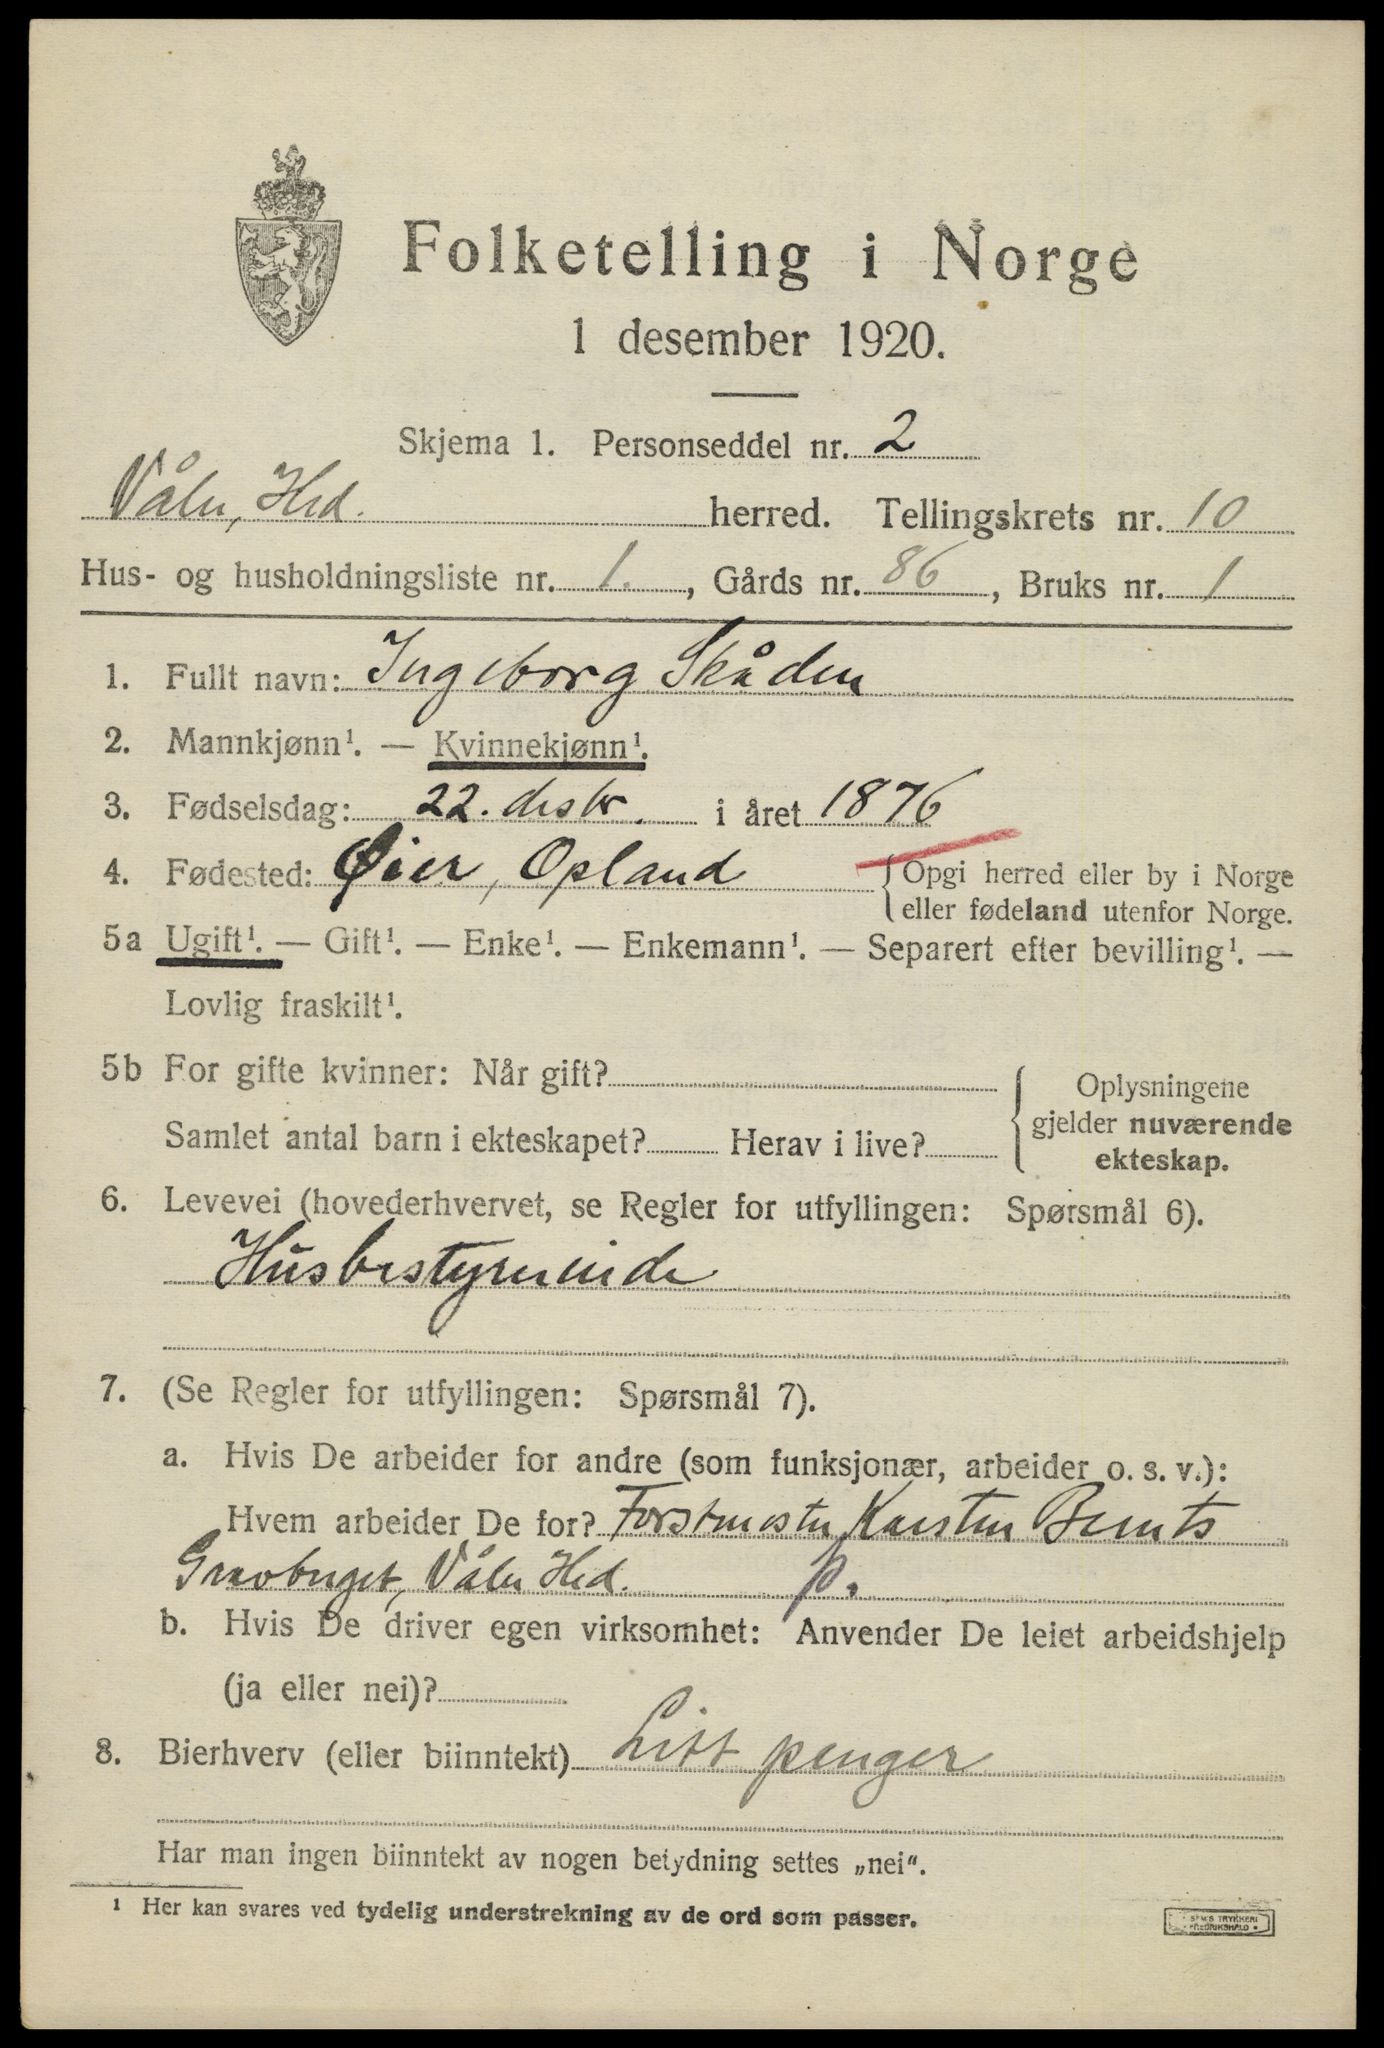 Folketelling i Norge
1 desember 1920.
Skjema 1. Personseddel nr. 2
Våler, Hed. herred. Tellingskrets nr. 10
Hus- og husholdningsliste nr. 1., Gårds nr. 86, Bruks nr. 1
1. Fullt navn: Ingeborg Skåden
2. Mannkjønn¹. — Kvinnekjønn¹.
3. Fødselsdag: 22. desbr. i året 1876
4. Fødested: Øier, Opland { Opgi herred eller by i Norge
eller fødeland utenfor Norge.
5a Ugift¹. — Gift¹. — Enke¹. — Enkemann¹. — Separert efter bevilling¹. —
Lovlig fraskilt¹.
5b For gifte kvinner: Når gift?
Samlet antal barn i ekteskapet? Herav i live?
Oplysningene
gjelder nuværende
ekteskap.
6. Levevei (hovederhvervet, se Regler for utfyllingen: Spørsmål 6).
Husbestyrerinde
7. (Se Regler for utfyllingen: Spørsmål 7).
a. Hvis De arbeider for andre (som funksjonær, arbeider o. s. v.):
Hvem arbeider De for? Forstmester Karsten Bernts
Gravberget, Våler Hed. p.
b. Hvis De driver egen virksomhet: Anvender De leiet arbeidshjelp
(ja eller nei)?
8. Bierhverv (eller biinntekt) Litt penger
Har man ingen biinntekt av nogen betydning settes „nei“.
¹ Her kan svares ved tydelig understrekning av de ord som passer.
TRYKKERI
FREDRIKSHALD